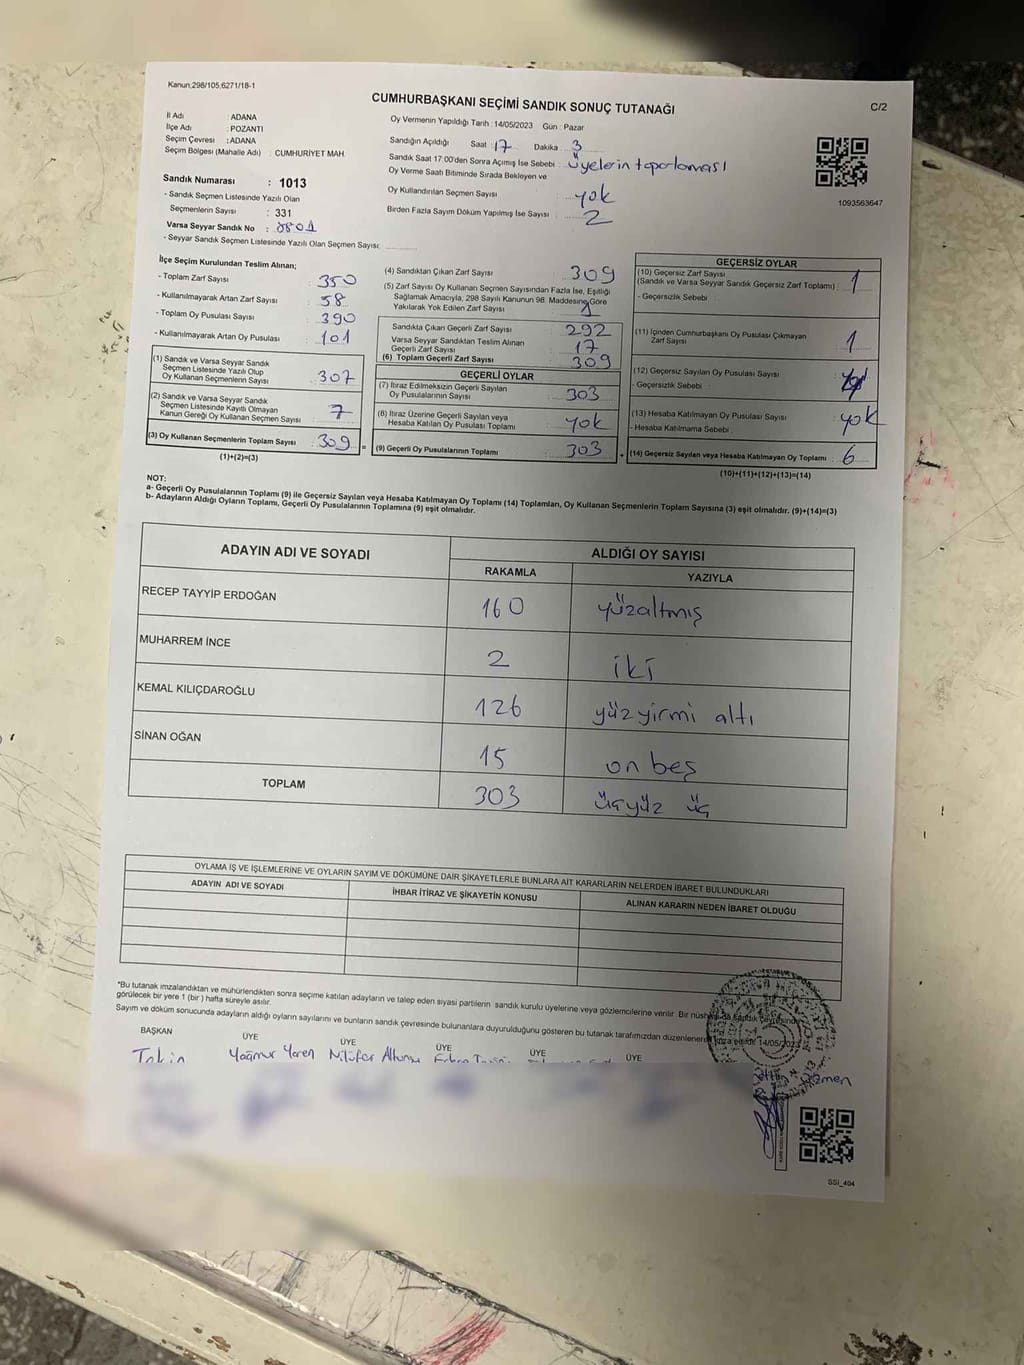 Kanun;298/105,6271/18-1
CUMHURBAŞKANI SEÇİMİ SANDIK SONUÇ TUTANAĞI
C/2
İl Adı : ADANA
İlçe Adı : POZANTI
Seçim Çevresi : ADANA
Seçim Bölgesi (Mahalle Adı) : CUMHURİYET MAH.
Sandık Numarası : 1013
- Sandık Seçmen Listesinde Yazılı Olan
Seçmenlerin Sayısı : 331
Varsa Seyyar Sandık No : 8801
- Seyyar Sandık Seçmen Listesinde Yazılı Olan Seçmen Sayısı:
Oy Vermenin Yapıldığı Tarih :14/05/2023 Gün : Pazar
Sandığın Açıldığı Saat : 17 Dakika : 3
Sandık Saat 17:00'den Sonra Açımış İse Sebebi : üyelerin toparlaması
Oy Verme Saati Bitiminde Sırada Bekleyen ve
Oy Kullandırılan Seçmen Sayısı : yok
Birden Fazla Sayım Döküm Yapılmış İse Sayısı : 2
1093563647
İlçe Seçim Kurulundan Teslim Alınan;
- Toplam Zarf Sayısı : 350
- Kullanılmayarak Artan Zarf Sayısı : 58
- Toplam Oy Pusulası Sayısı : 390
- Kullanılmayarak Artan Oy Pusulası : 101
(1) Sandık ve Varsa Seyyar Sandık
Seçmen Listesinde Yazılı Olup
Oy Kullanan Seçmenlerin Sayısı : 307
(2) Sandık ve Varsa Seyyar Sandık
Seçmen Listesinde Kayıtlı Olmayan
Kanun Gereği Oy Kullanan Seçmen Sayısı : 7
(3) Oy Kullanan Seçmenlerin Toplam Sayısı : 309
(1)+(2)=(3)
(4) Sandıktan Çıkan Zarf Sayısı : 309
(5) Zarf Sayısı Oy Kullanan Seçmen Sayısından Fazla İse, Eşitliği
Sağlamak Amacıyla, 298 Sayılı Kanunun 98. Maddesine Göre
Yakılarak Yok Edilen Zarf Sayısı : 1
Sandıkta Çıkan Geçerli Zarf Sayısı : 292
Varsa Seyyar Sandıktan Teslim Alınan
Geçerli Zarf Sayısı : 17
(6) Toplam Geçerli Zarf Sayısı : 309
GEÇERLİ OYLAR
(7) İtiraz Edilmeksizin Geçerli Sayılan
Oy Pusulalarının Sayısı : 303
(8) İtiraz Üzerine Geçerli Sayılan veya
Hesaba Katılan Oy Pusulası Toplamı : yok
(9) Geçerli Oy Pusulalarının Toplamı : 303
GEÇERSİZ OYLAR
(10) Geçersiz Zarf Sayısı
(Sandık ve Varsa Seyyar Sandık Geçersiz Zarf Toplamı) : 1
- Geçersizlik Sebebi :
(11) İçinden Cumhurbaşkanı Oy Pusulası Çıkmayan
Zarf Sayısı : 1
(12) Geçersiz Sayılan Oy Pusulası Sayısı :
- Geçersizlik Sebebi :
(13) Hesaba Katılmayan Oy Pusulası Sayısı : yok
- Hesaba Katılmama Sebebi :
(14) Geçersiz Sayılan veya Hesaba Katılmayan Oy Toplamı : 6
(10)+(11)+(12)+(13)=(14)
NOT:
a- Geçerli Oy Pusulalarının Toplamı (9) ile Geçersiz Sayılan veya Hesaba Katılmayan Oy Toplamı (14) Toplamları, Oy Kullanan Seçmenlerin Toplam Sayısına (3) eşit olmalıdır. (9)+(14)=(3)
b- Adayların Aldığı Oyların Toplamı, Geçerli Oy Pusulalarının Toplamına (9) eşit olmalıdır.
ADAYIN ADI VE SOYADI ALDIĞI OY SAYISI
RAKAMLA YAZIYLA
RECEP TAYYİP ERDOĞAN 160 yüzaltmış
MUHARREM İNCE 2 iki
KEMAL KILIÇDAROĞLU 126 yüzyirmi altı
SİNAN OĞAN 15 on beş
TOPLAM 303 üçyüz üç
OYLAMA İŞ VE İŞLEMLERİNE VE OYLARIN SAYIM VE DÖKÜMÜNE DAİR ŞİKAYETLERLE BUNLARA AİT KARARLARIN NELERDEN İBARET BULUNDUKLARI
ADAYIN ADI VE SOYADI İHBAR İTİRAZ VE ŞİKAYETİN KONUSU ALINAN KARARIN NEDEN İBARET OLDUĞU
*Bu tutanak imzalandıktan ve mühürlendikten sonra seçime katılan adayların ve talep eden siyasi partilerin sandık kurulu üyelerine veya gözlemcilerine verilir. Bir nüshası da sandık çevresinde
görülecek bir yere 1 (bir ) hafta süreyle asılır.
Sayım ve döküm sonucunda adayların aldığı oyların sayılarını ve bunların sandık çevresinde bulunanlara duyurulduğunu gösteren bu tutanak tarafımızdan düzenlenerek imza edildi. 14/05/2023
BAŞKAN ÜYE ÜYE ÜYE ÜYE ÜYE
Yağmur Yaren Nilüfer
SSİ_404